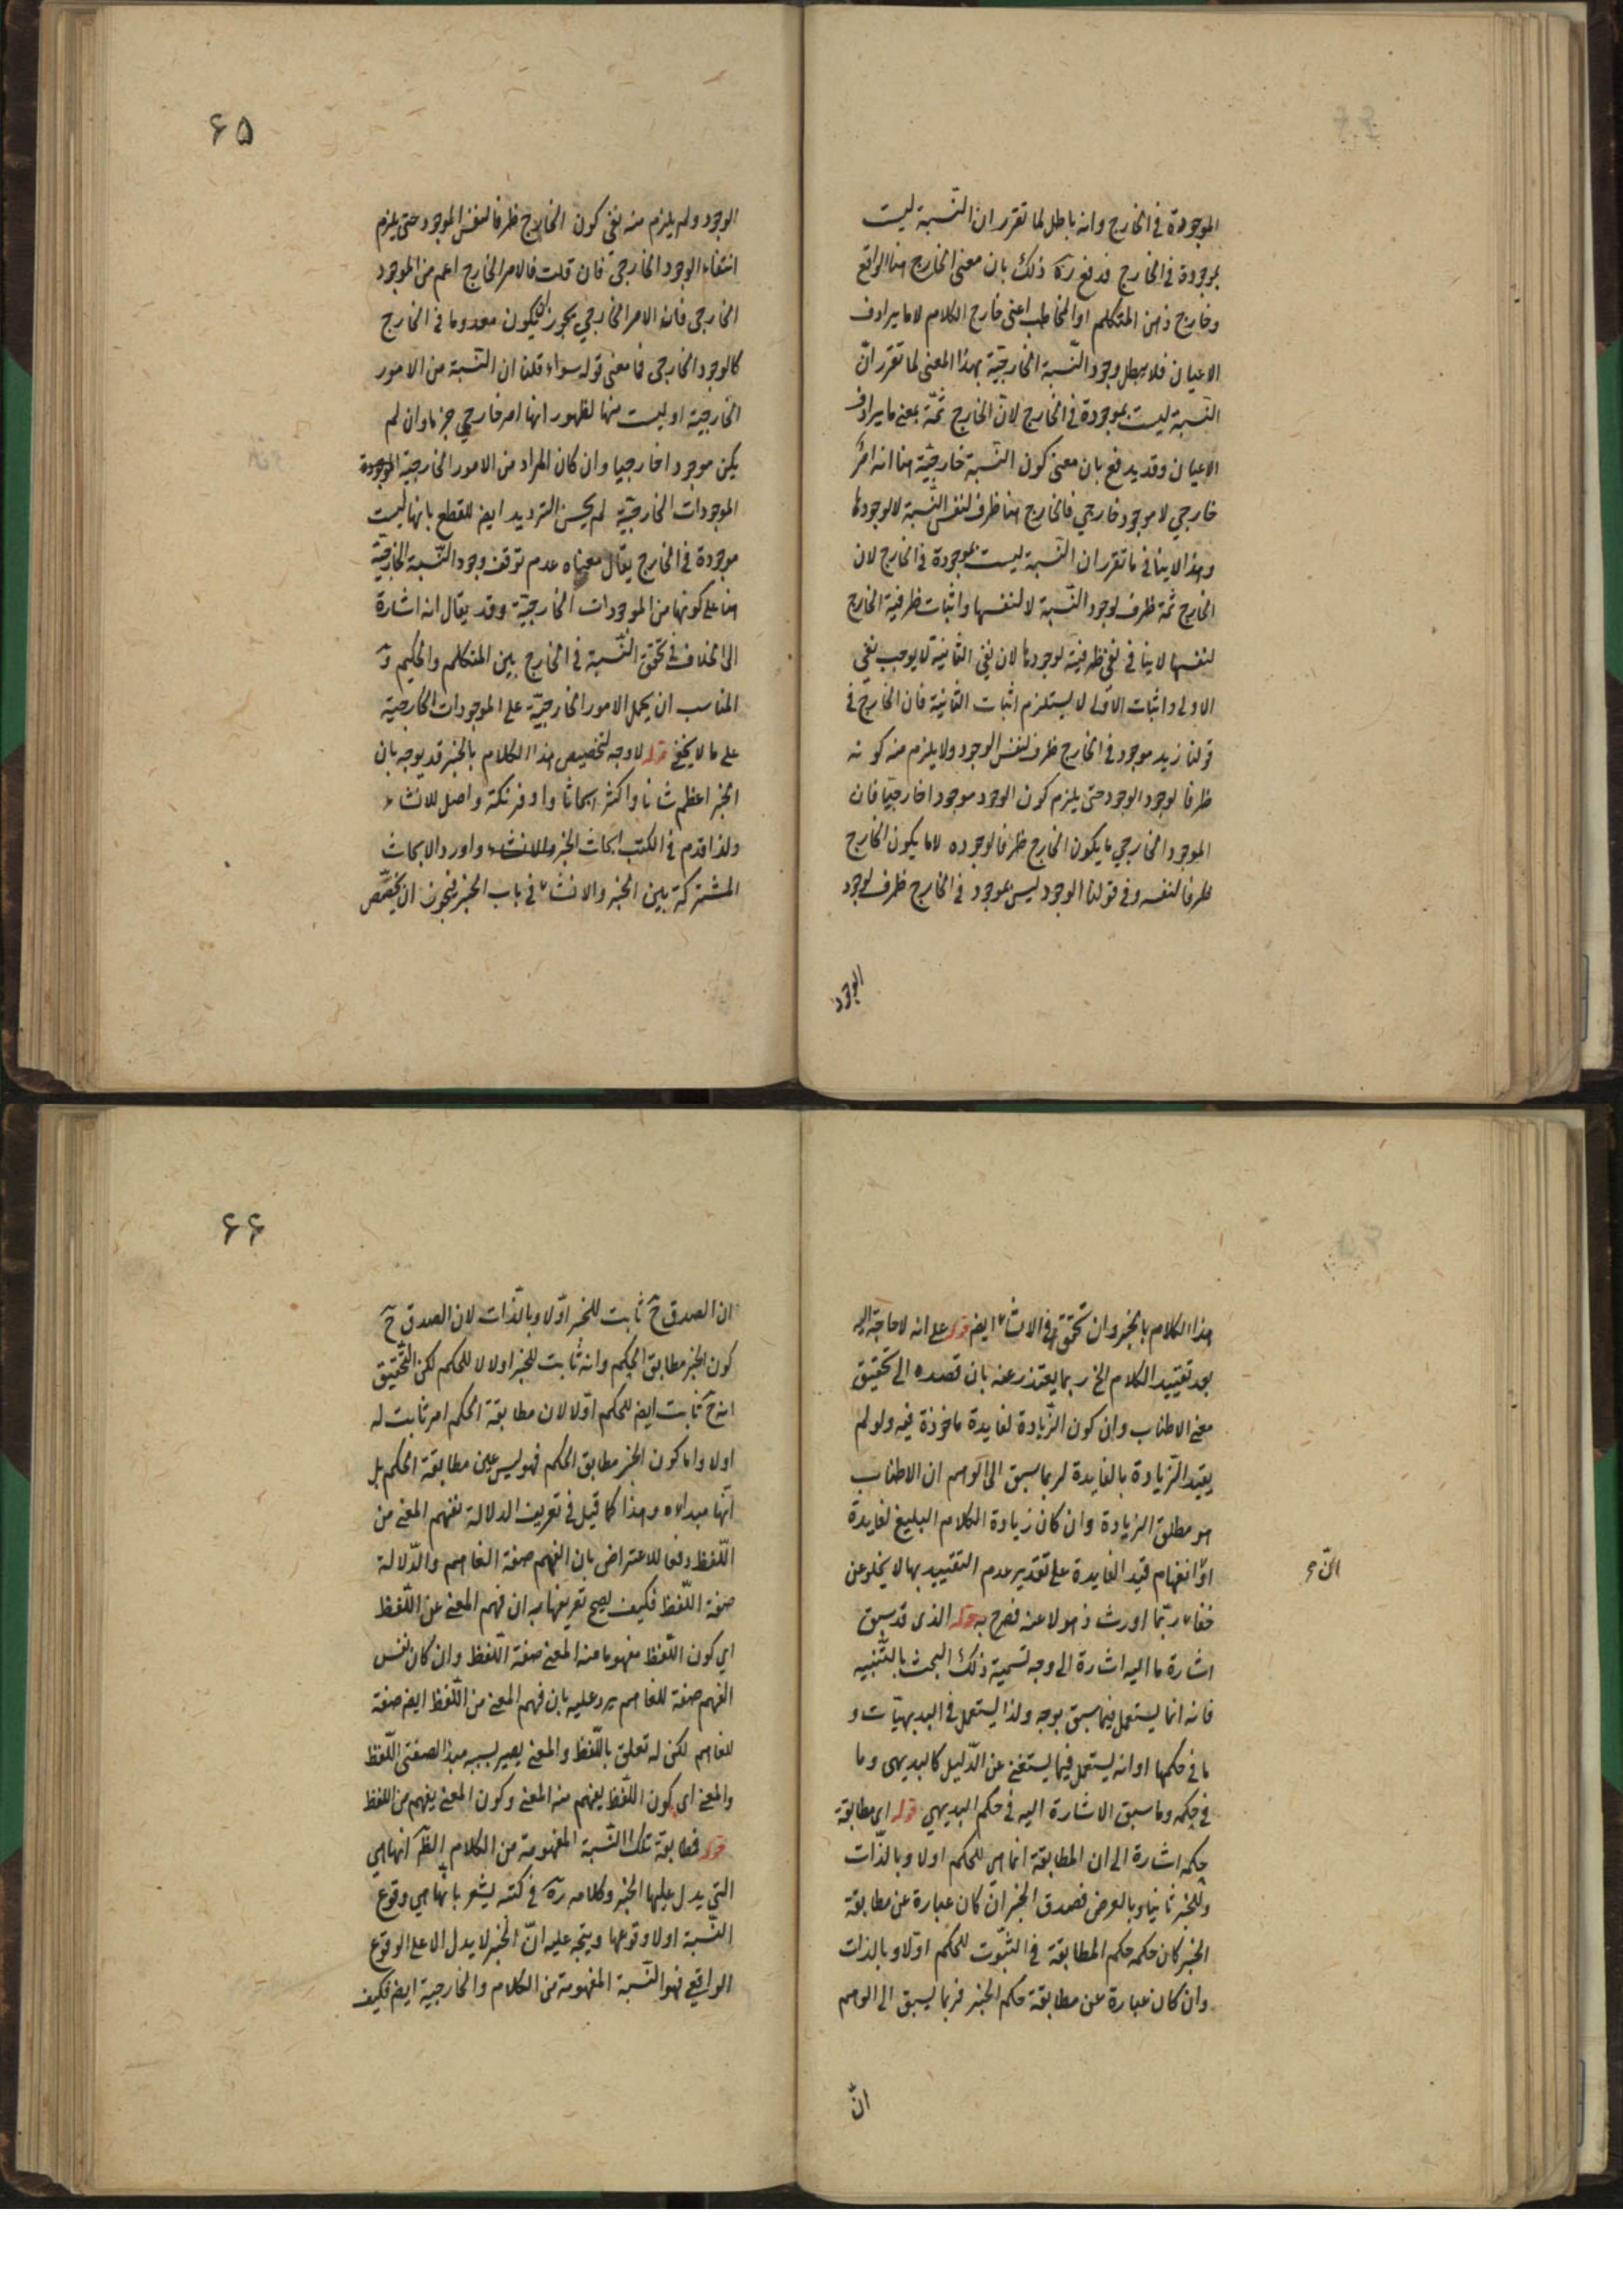 الموجودة في الخارج وانه باطل لما تقرر ان النّسبة ليست
بموجودة في الخارج فدفع ره ذلك بان معنى الخارج هنا الواقع
وخارج ذهن المتكلم او المخاطب اعنى خارج الكلام لا ما يرادف
الاعيان فلا يبطل وجود النّسبة الخارجيّة بهذا المعنى لما تقرر انّ
النّسبة ليست بموجودة في الخارج لانّ الخارج ثمّة بمعنى ما يرادف
الاعيان وقد يدفع بان معنى كون النّسبة خارجيّة هنا انه امرٌ
خارجي لا موجود خارجي فالخارج هنا ظرف لنفس النّسبة لا لوجودها
وهذا لا ينافى ما تقرر ان النّسبة ليست بموجودة في الخارج لان
الخارج ثمة ظرف لوجود النّسبة لا لنفسها واثبات ظرفية الخارج
لنفسها لا ينافى نفى ظرفيته لوجودها لان نفى الثانية لا يوجب نفى
الاولى واثبات الاولى لا يستلزم اثبات الثانية فان الخارج في
قولنا زيد موجود في الخارج ظرف لنفس الوجود ولا يلزم منه كونه
ظرفا لوجود الوجود حتى يلزم كون الوجود موجودا خارجيا فان
الموجود الخارجي ما يكون الخارج ظرفا لوجوده لا ما يكون الخارج
ظرفا لنفسه وفي قولنا الوجود ليس بموجود في الخارج ظرف لوجود
الوجود
۶۵
الوجود ولم يلزم منه نفى كون الخارج ظرفا لنفس الموجود حتى يلزم
انتفاء الوجود الخارجي فان قلت فالامر الخارج اعم من الموجود
الخارجى فان الامر الخارجي يجوز ان يكون معدوما في الخارج
كالوجود الخارجى فما معنى قوله سواء قلنا ان النّسبة من الامور
الخارجيّة او ليست منها لظهور انها امر خارجي جزما وان لم
يكن موجودا خارجيا وان كان المراد من الامور الخارجية الموجودة
الموجودات الخارجيّة لم يحسن الترديد ايضا للقطع بانها ليست
موجودة في الخارج يقال معناه عدم توقف وجود النّسبة الخارجيّة
هنا على كونها من الموجودات الخارجيّة وقد يقال انه اشارة
الى الخلاف في تحقق النّسبة في الخارج بين المتكلم والحكيم وح
المناسب ان يحمل الامور الخارجيّة على الموجودات الخارجية
على ما لا يخفى قوله لا وجه لتخصيص هذا الكلام بالخبر قد يوجه بان
الخبر اعظم شانا واكثر ابحاثا واوفر نكتة واصل للانشاء
ولذا قدم في الكتب ابحاث الخبر والانشاء واورد الابحاث
المشتركة بين الخبر والانشاء في باب الخبر فيجوز ان يخصّص
هذا الكلام بالخبر وان تحقق في الانشاء ايضا قوله على انه لا حاجة اليه
بعد تقييد الكلام الخ ربما يعتذر عنه بان قصده الى تحقيق
معنى الاطناب وان كون الزّيادة لفايدة ماخوذة فيه ولو لم
يقيد الزّيادة بالفايدة لربما سبق الى الوهم ان الاطناب
هو مطلق الزيادة وان كان زيادة الكلام البليغ لفايدة
او انفهام قيد الفايدة على تقدير عدم التقييد بها لا يخلو عن
خفاء ربّما اورث ذهولا عنه فصرح به قوله الذى قد سبق
اشارة ما اليه اشارة الى وجه تسمية ذلك البحث بالتّنبيه
فانه انما يستعمل فيما سبق بوجه ولذا يستعمل في البديهيّات و
ما في حكمها او انه يستعمل فيما يستغنى عن الدّليل كالبديهى وما
في حكمه وما سبق الاشارة اليه في حكم البديهي قوله اي مطابقة
حكمه اشارة الى ان المطابقة انما هى للحكم اولا وبالذّات
وللخبر ثانيا وبالعرض فصدق الخبر ان كان عبارة عن مطابقة
الخبر كان حكمه حكم المطابقة في الثّبوت للحكم اوّلا وبالذات
وان كان عبارة عن مطابقة حكم الخبر فربما يسبق الى الوهم
انّ
۶۶
ان الصدق ح ثابت للخبر اوّلا وبالذّات لان الصدق ح
كون الخبر مطابق الحكم وانه ثابت للخبر اولا لا للحكم لكن التّحقيق
انه ح ثابت ايضا للحكم اوّلا لان مطابقة الحكم امر ثابت له
اولا واما كون الخبر مطابق الحكم فهو ليس عين مطابقة الحكم بل
انّها مبداه وهذا كما قيل في تعريف الدلالة بفهم المعنى من
اللّفظ دفعا للاعتراض بان الفهم صفة الفاهم والدّلالة
صفة اللّفظ فكيف يصح تعريفها به ان فهم المعنى عن اللّفظ
اي كون اللّفظ مفهوما منه المعنى صفة اللّفظ وان كان نفس
الفهم صفة للفاهم يرد عليه بان فهم المعنى من اللّفظ ايضا صفة
للفاهم لكن له تعلق باللّفظ والمعنى يصير بسببه مبدا لصفتى اللّفظ
والمعنى اى كون اللّفظ يفهم منه المعنى وكون المعنى يفهم من اللفظ
قوله فمطابقة تلك النّسبة المفهومة من الكلام الظّ انها هي
التي يدل عليها الخبر وكلامه ره في كتبه يشعر بانها هي وقوع
النّسبة اولا وقوعها ويتجه عليه انّ الخبر لا يدل الا على الوقوع
الواقعي فهو النّسبة المفهومة من الكلام والخارجية ايضا فكيف